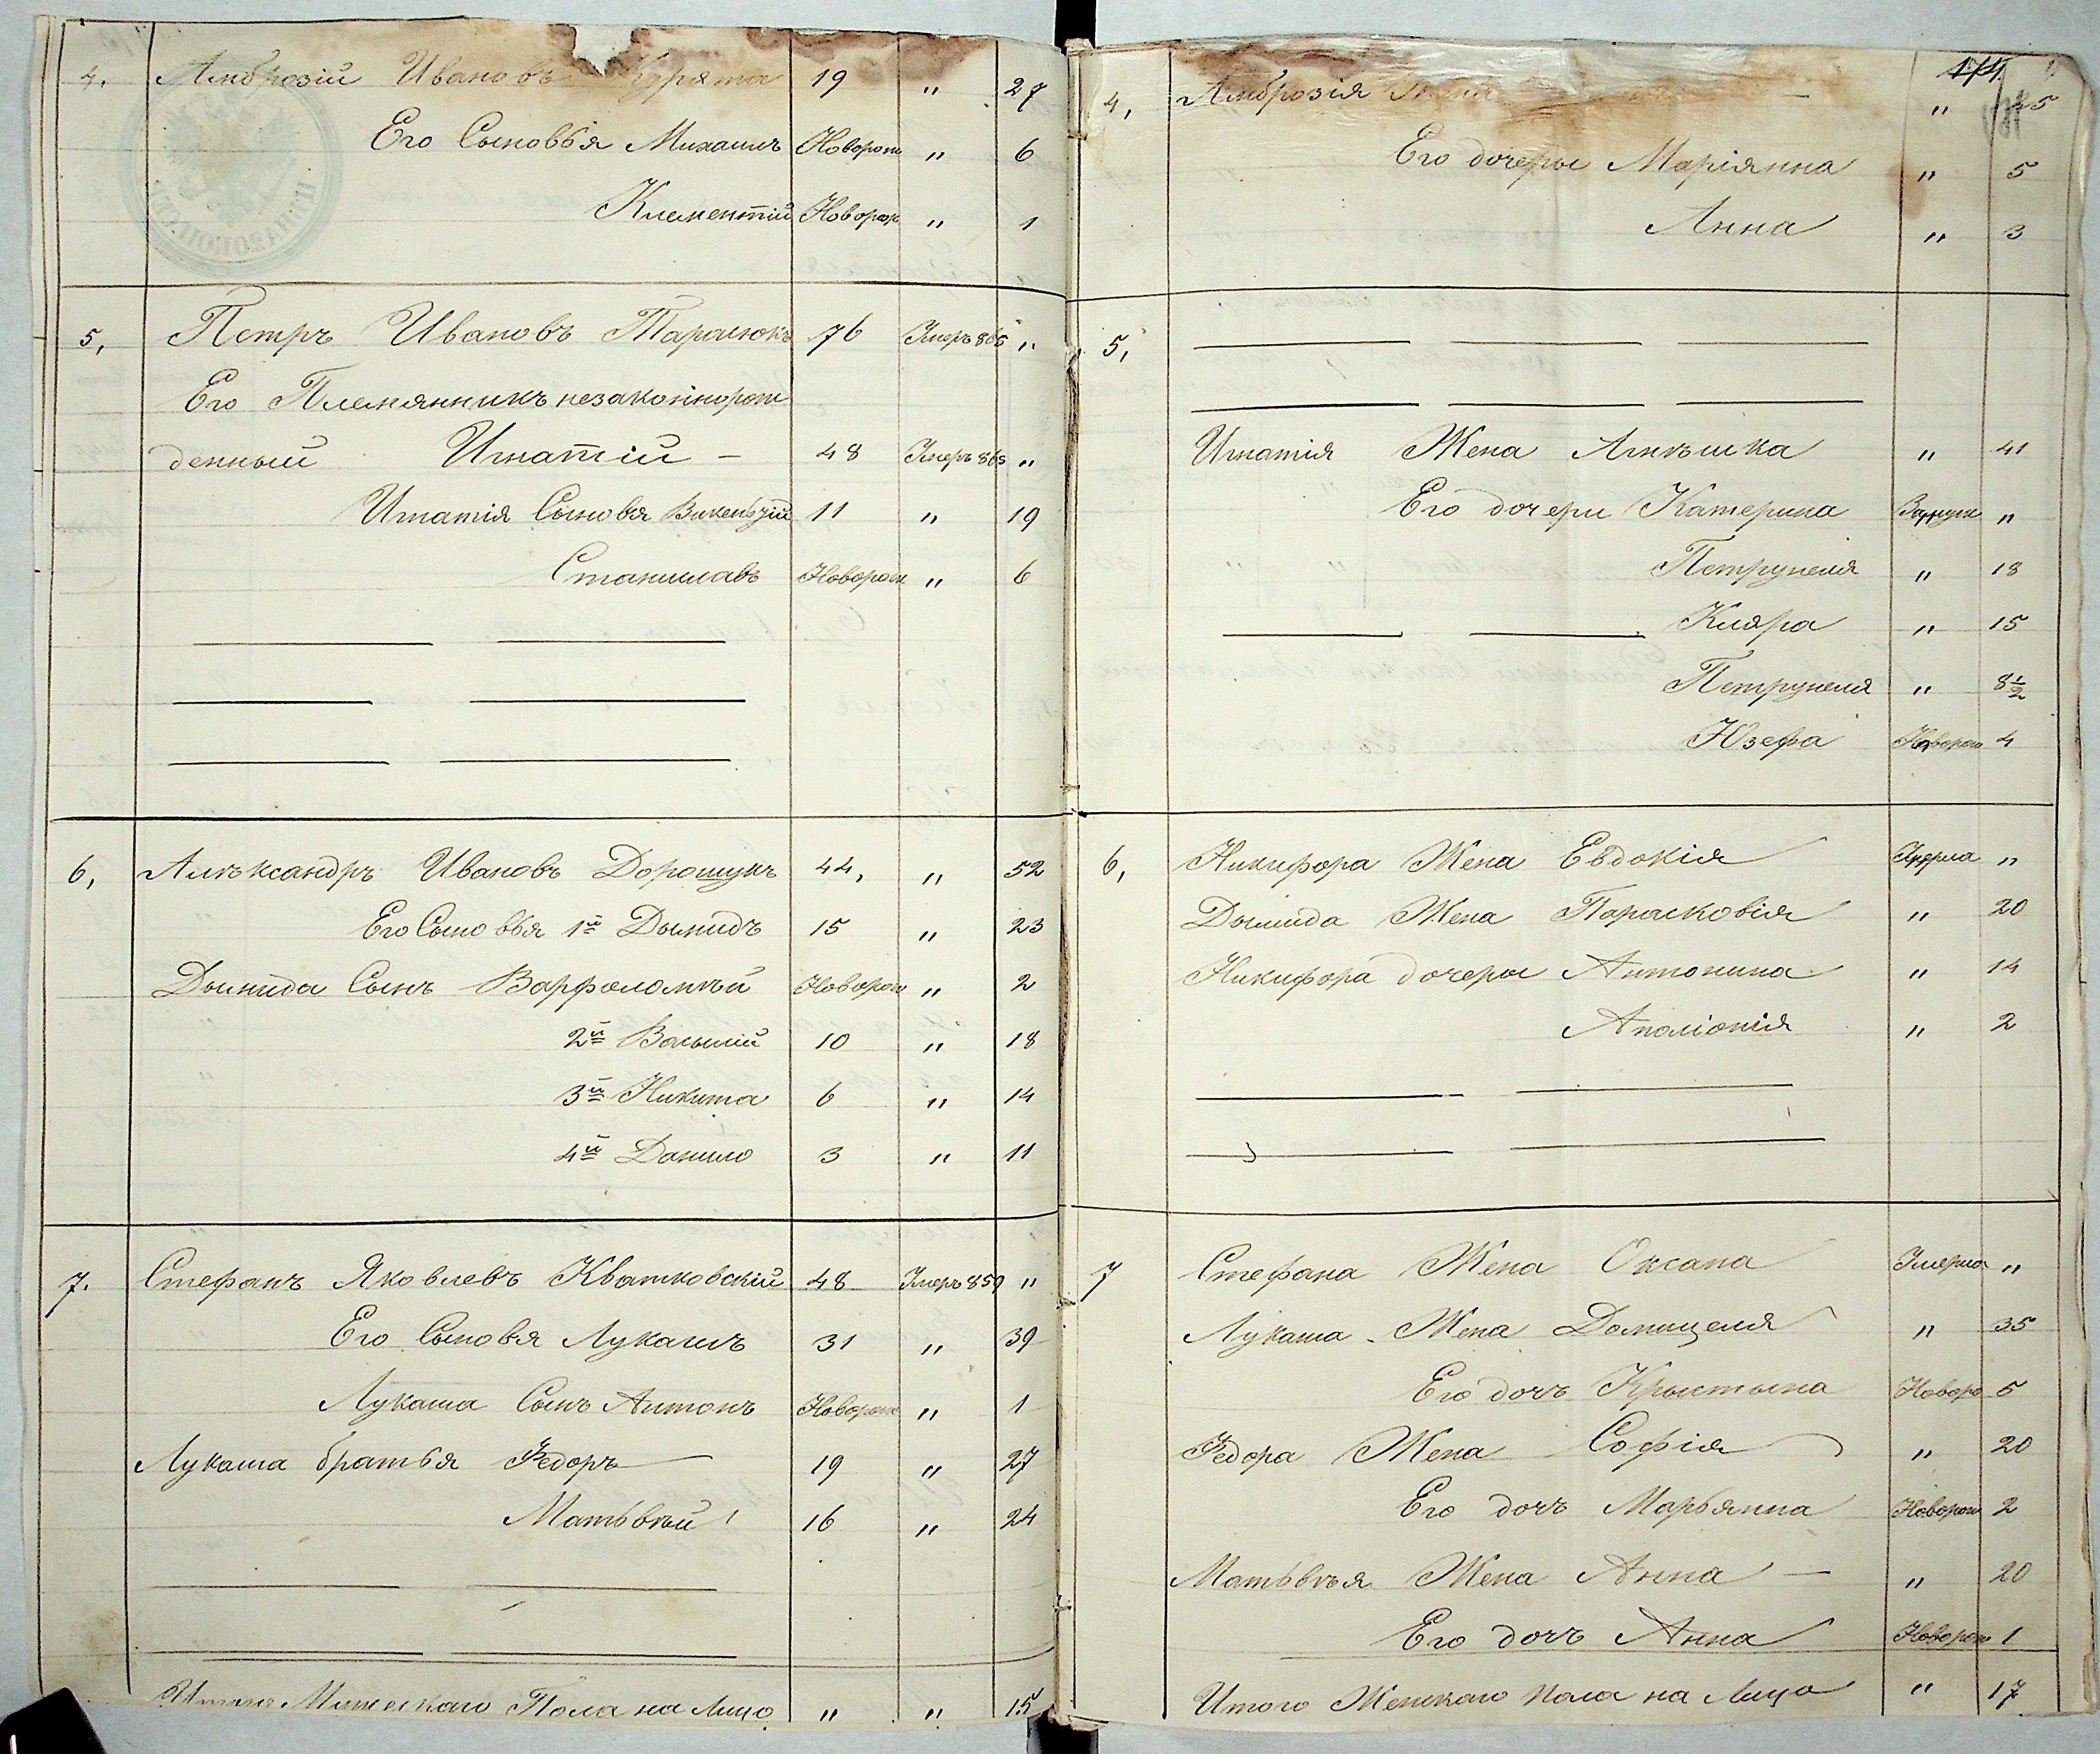 4. Амброзій Ивановъ Курята 19 " 27
Его Сыновья Михаилъ Новорож " 6
Климентій Новорож " 1
5, Петръ Ивановъ Тарасюкъ 76 Умеръ 865 "
Его Племянникъ незаконнорож
денный Игнатій – 48 Умеръ 865 "
Игнатія Сыновя Викентій 11 " 19
Станиславъ Новорож " 6
6, Александръ Ивановъ Дорошукъ 44, " 52
Его Сыновья 1й Дымидъ 15 " 23
Дымида Сынъ Варфоломѣй Новорож " 2
2й Васылій 10 " 18
3й Никита 6 " 14
4й Данило 3 " 11
7. Стефанъ Яковлевъ Квятковскій 48 Умеръ 859 "
Его Сыновя Лукашъ 31 " 39
Лукаша Сынъ Антонъ Новорож " 1
Лукаша братья Федоръ 19 " 27
Матьвѣй 16 " 24
Итого Мужескаго Пола на Лицо " " 15
174
4, Амброзія Жена " 25
Его дочеры Маріянна " 5
Анна " 3
5,
Игнатія Жена Агнѣшка " 41
Его дочери Катерина Замуж "
Петрунеля " 18
Кляра " 15
Петрунеля " 8½
Юзефа Новорож 4
6, Никифора Жена Евдокія Умерла "
Дымида Жена Парасковія " 20
Никифора дочеры Антонина " 14
Аполіонія " 2
7 Стефана Жена Оксана Умерла "
Лукаша Жена Домицеля " 35
Его дочъ Крыстына Новоро 5
Федора Жена Софія " 20
Его дочъ Марьянна Новорож 2
Матьвѣя Жена Анна – " 20
Его дочъ Анна Новорож 1
Итого Женскаго пола на Лицо " 17